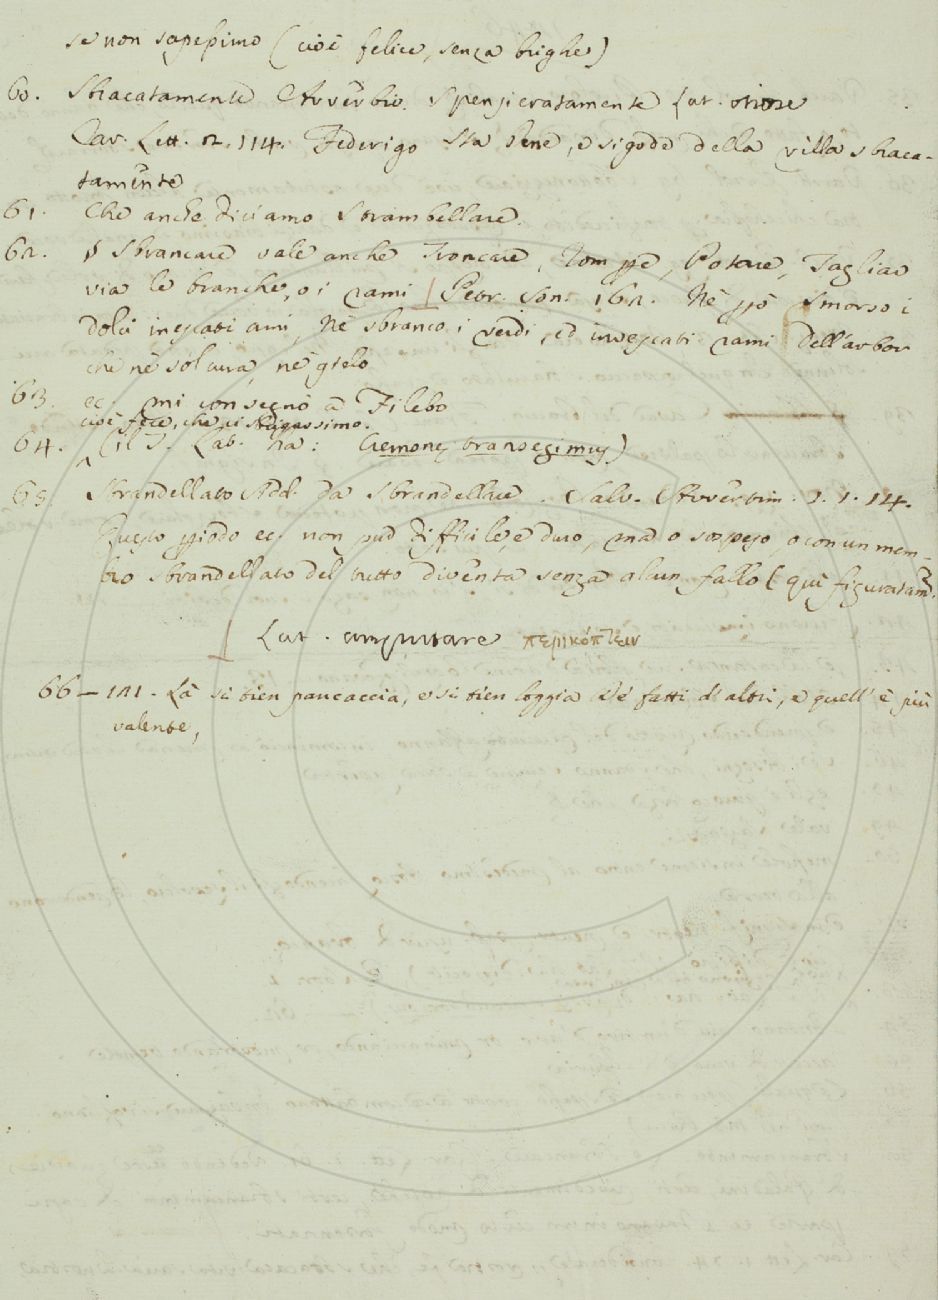 se non sapessimo (cioè felice, senza brighe)
60. Sbracatamente Avverbio. Spensieratamente Lat. otiose
Car. Lett. 2. 114. Federigo sta bene, e si gode della villa sbraca-
tamente
61. Che anche diciamo Strambellare.
62. § Sbrancare vale anche Troncare, Rompe, Potare, Tagliar
via le branche, o i rami Petr. Son. 162. Nè però smorso i
dolci inescati ami, Nè sbranco i verdi, ed invescati rami Dell'arbor
che nè sol cura, nè gielo
63. ec. mi consegnò a Filebo
cioè fece, che ci
64. (il T. Lat. ha: )
65. Sbrandellato Add. da Sbrandellare. Salv. Avvertim. 1. 1. 14.
Questo ec. non può difficile, e duro, ma o sospeso, o con un mem-
bro sbrandellato del tutto diventa senza alcun fallo (quì figuratam.
Lat. amputare περικόπτειν
66 — 121. Là si tien pancaccia, e si tien loggia de' fatti d'altri, e quell' è più
valente,